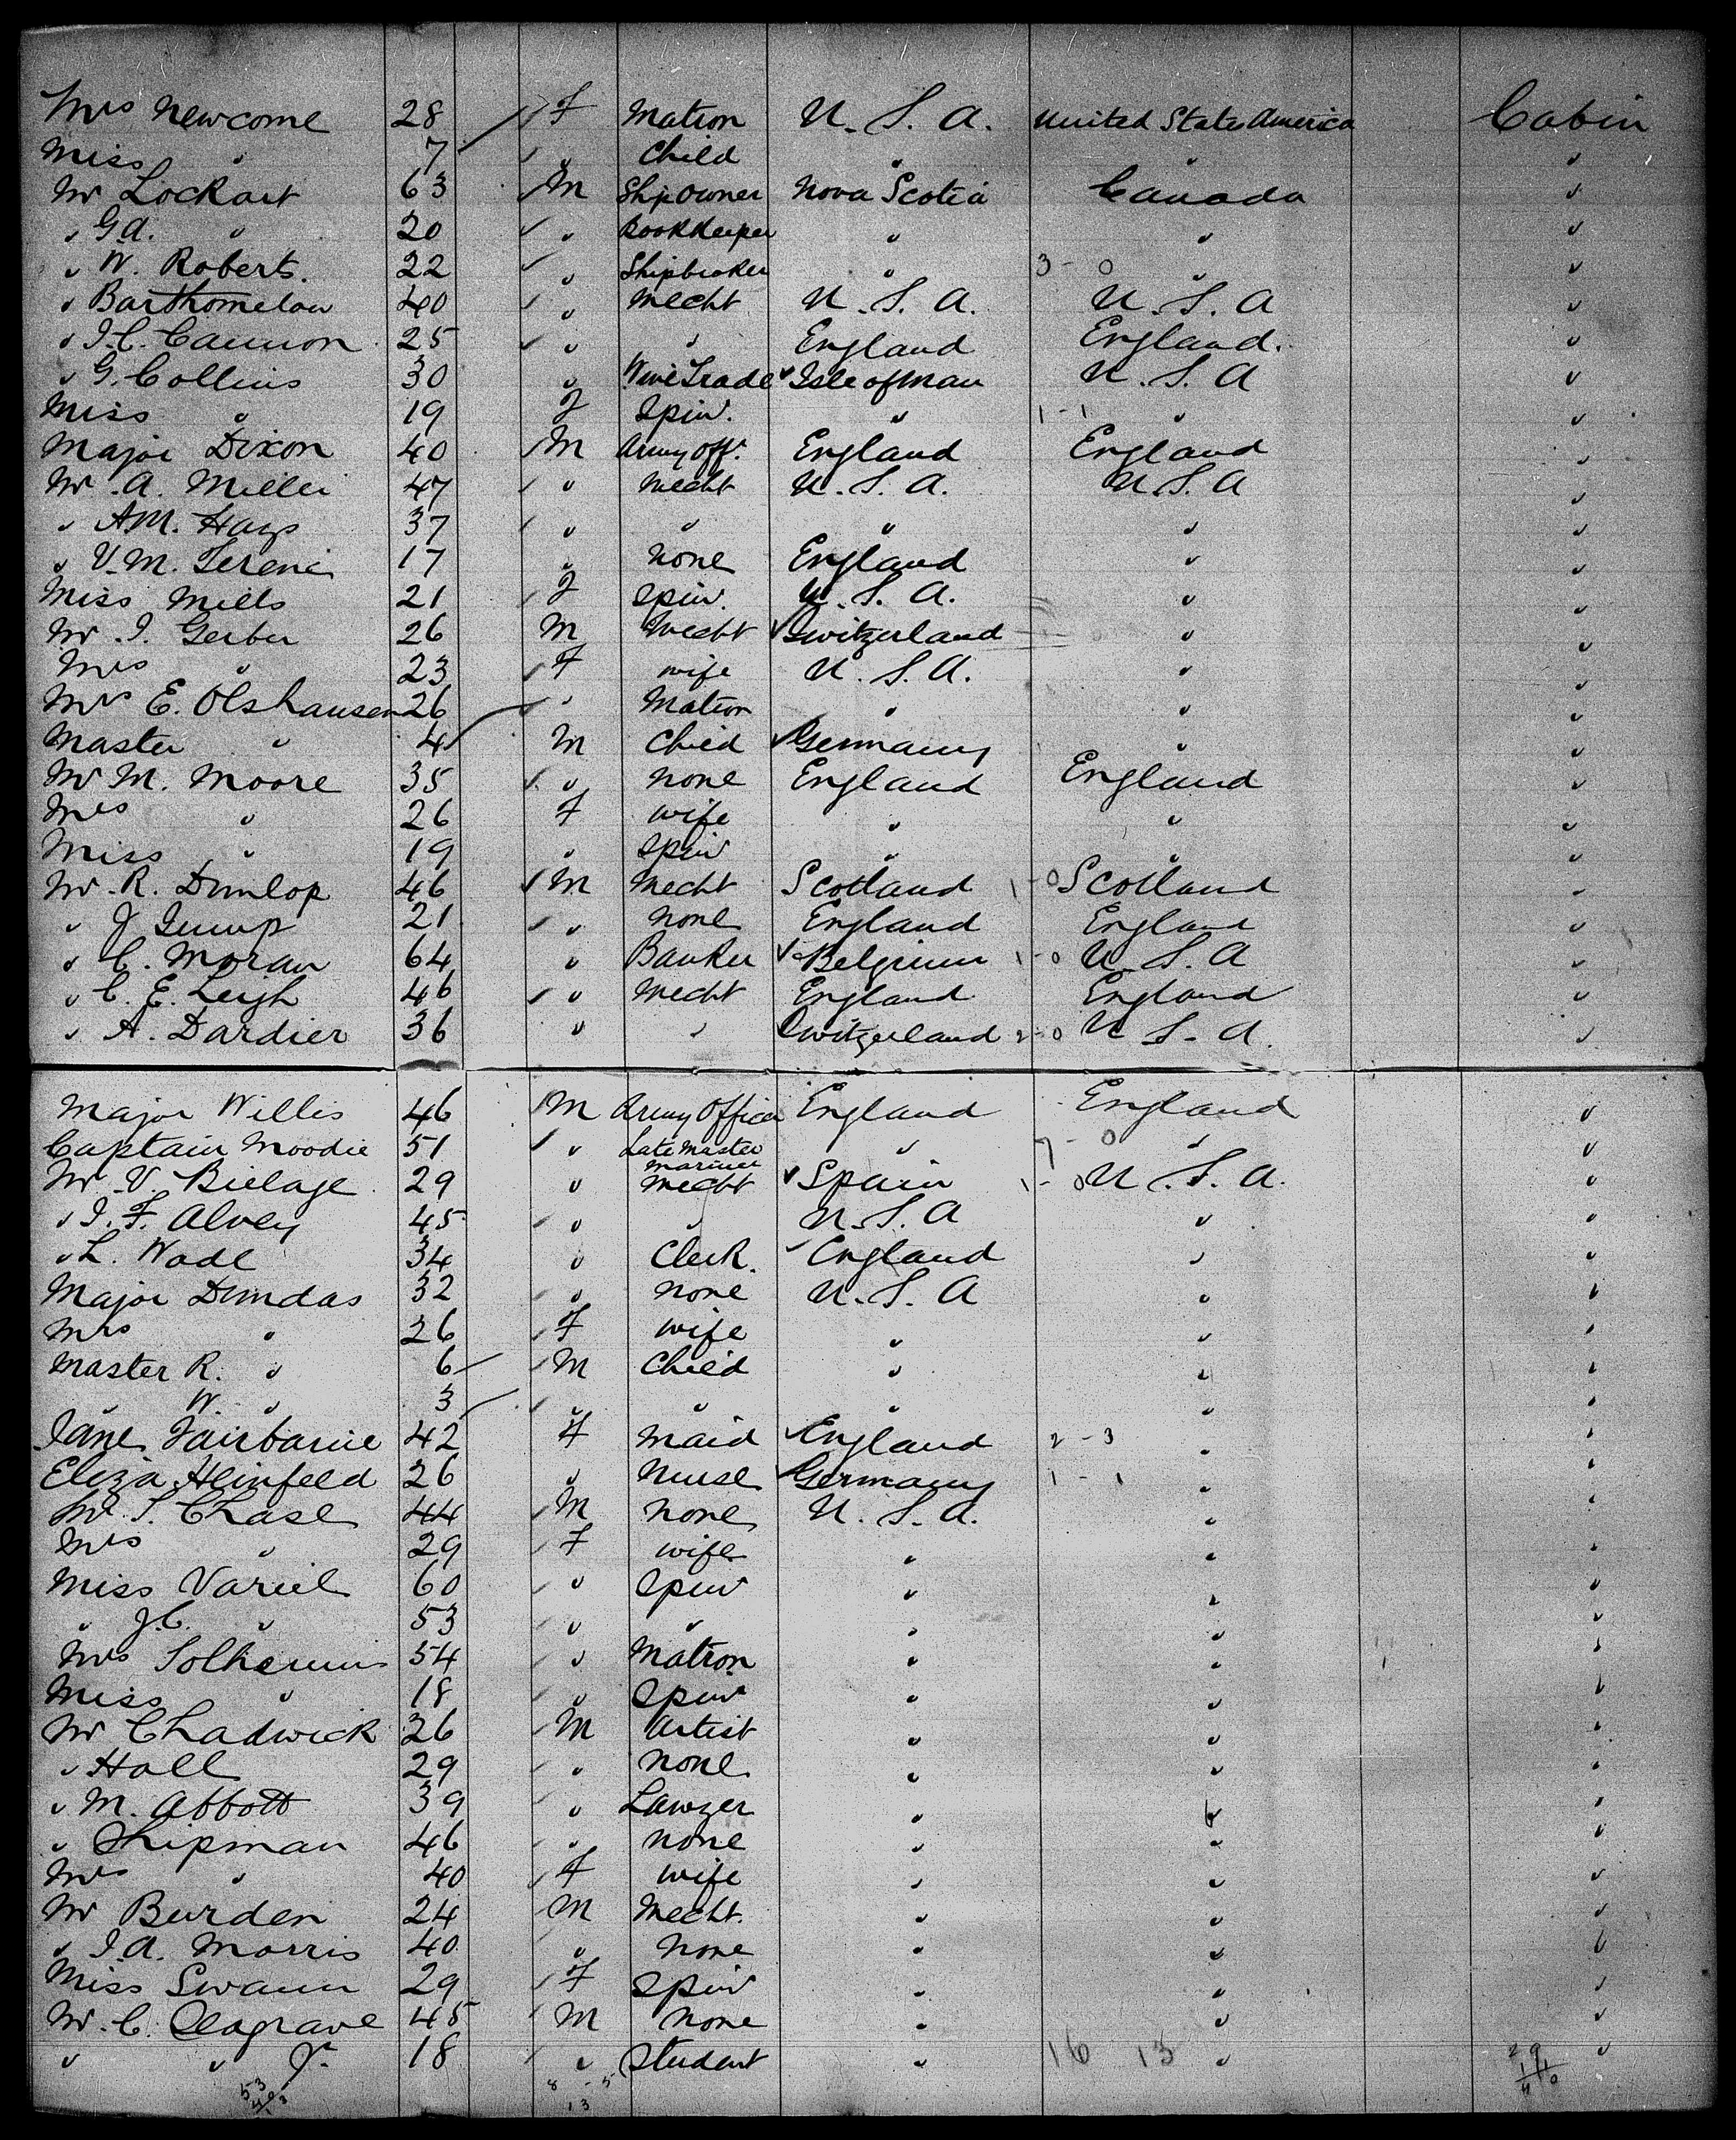 Mrs Newcome 28 F Matron U. S. A. United States America Cabin
Miss " 7 " Child " " "
Mr Lockart 63 M Ship owner Nova Scotia Canada "
" G.A. " 20 " Bookkeeper " " "
" W. Roberts. 22 " Shipbroker " 3 - 0 " "
" Barthomelow 40 " Mecht U. S. A. U. S. A "
" J. C. Cannon 25 " " England England. "
" G. Collins 30 " Wine Trade Isle of Man U. S. A "
Miss " 19 F Spin. " 1 - 1 " "
Major Dixon 40 M Army Off. England England "
Mr. A. Miller 47 " Mecht U. S. A. U. S. A "
" A.M. Hays 37 " " " " "
" V. M. 17 " none England " "
Miss Mills 21 F Spin. U. S. A. " "
Mr. J. Gerber 26 M Mecht Switzerland " "
Mrs " 23 F wife U. S. A. " "
Mrs E. Olshausen 26 " Matron " " "
Master " 4 M Child Germany " "
Mr M. Moore 35 " none England England "
Mrs " 26 F wife " " "
Miss " 19 " Spin " " "
Mr. R. Dunlop 46 M Mecht Scotland 1 - 0 Scotland "
" J Jump 21 " none England England "
" C. Moran 64 " Banker Belgium 1 - 0 U. S. A "
" C. E. Leigh 46 " Mecht England England "
" A. Dardier 36 " " Switzerland 2 - 0 U. S. A. "
Major Willis 46 M Army Officer England England "
Captain Moodie 51 " Late Master Mariner " 7 - 0 " "
Mr. V. Bielage 29 " Mecht Spain 1 - 0 U. S. A. "
" J. F. Alvey 45 " " U. S. A " "
" L. Wade 34 " Clerk. England " "
Major Dundas 32 " none U. S. A " "
Mrs " 26 F wife " " "
Master R. " 6 M Child " " "
" W. " 3 " " " " "
Jane Fairbarne 42 F Maid England 2 - 3 " "
Eliza Heinfeld 26 " Nurse Germany 1 - 1 " "
Mr. S. Chase 44 M none U. S. A. " "
Mrs " 29 F wife " " "
Miss Variel 60 " Spin " " "
" J.C. " 53 " " " " "
Mrs 54 " Matron " " "
Miss " 18 " Spin " " "
Mr Chadwick 26 M Artist " " "
" Hall 29 " none " " "
" M. Abbott 39 " Lawyer " " "
" Shipman 46 " none " " "
Mrs " 40 F wife " " "
Mr Burden 24 M Mecht. " " "
" J. A. Morris 40 " none " " "
Miss Swann 29 F Spin " " "
Mr. C. Seagrave 45 M none " " "
" " Jr. 18 " Student " 16 13 " "